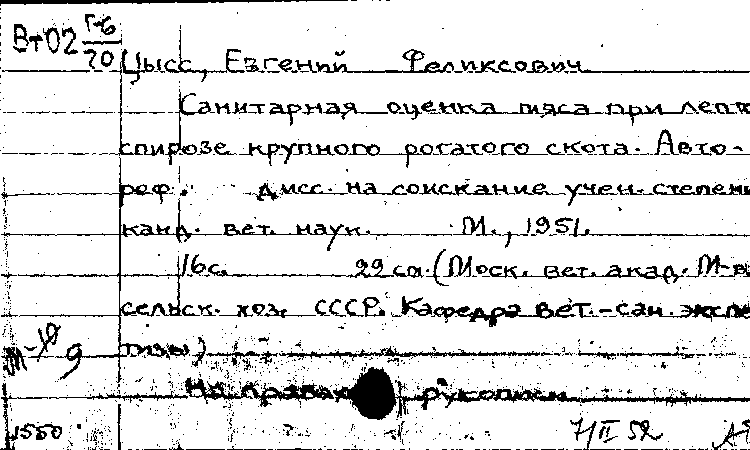 Вт02 Г-6
70
Цысс, Евгений Феликсович
Санитарная оценка мяса при лепто
спирозе крупного рогатого скота. Авто-
реф. дисс. на соискание учен. степени
канд. вет. наук. М., 1951.
16с. 29 см. (Моск. вет. акад. М-в
сельск. хоз. СССР. Кафедра вет.-сан. экспе
тизы)
На правах рукописи
1550 7/II 52